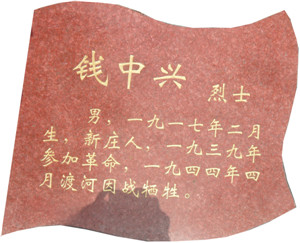 钱中兴 烈士
男，一九一七年二月
生，新庄人，一九三九年
参加革命，一九四四年四
月渡河因战牺牲。